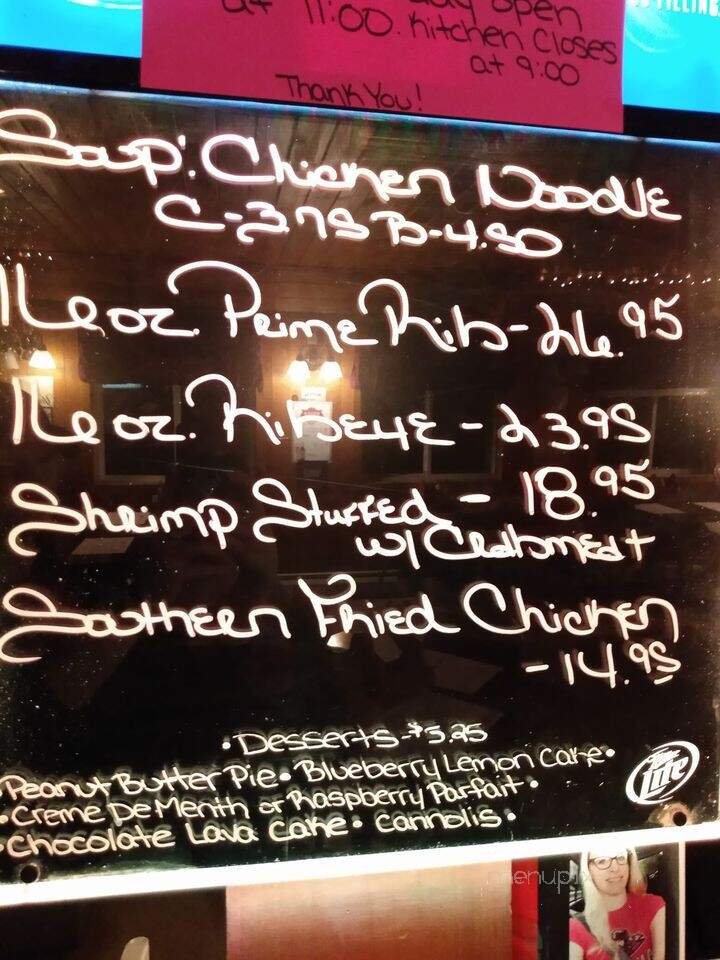 at 11:00. Kitchen Closes
at 9:00
Thank You!
Soup: Chicken Noodle
C-3.75 B-4.50
16 oz. Prime Rib-26.95
16 oz. Ribeye-23.95
Shrimp Stuffed - 18.95
w/ Crabmeat
Southern Fried Chicken
-14.95
•Desserts-$5.25
Peanut Butter Pie• Blueberry Lemon Cake•
•Creme De Menth or Raspberry Parfait•
•Chocolate Lava Cake• Cannolis•
Lite
menupix